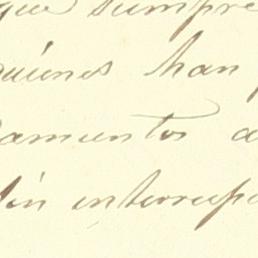 que siempre
quienes han
amientos a
sin interrup